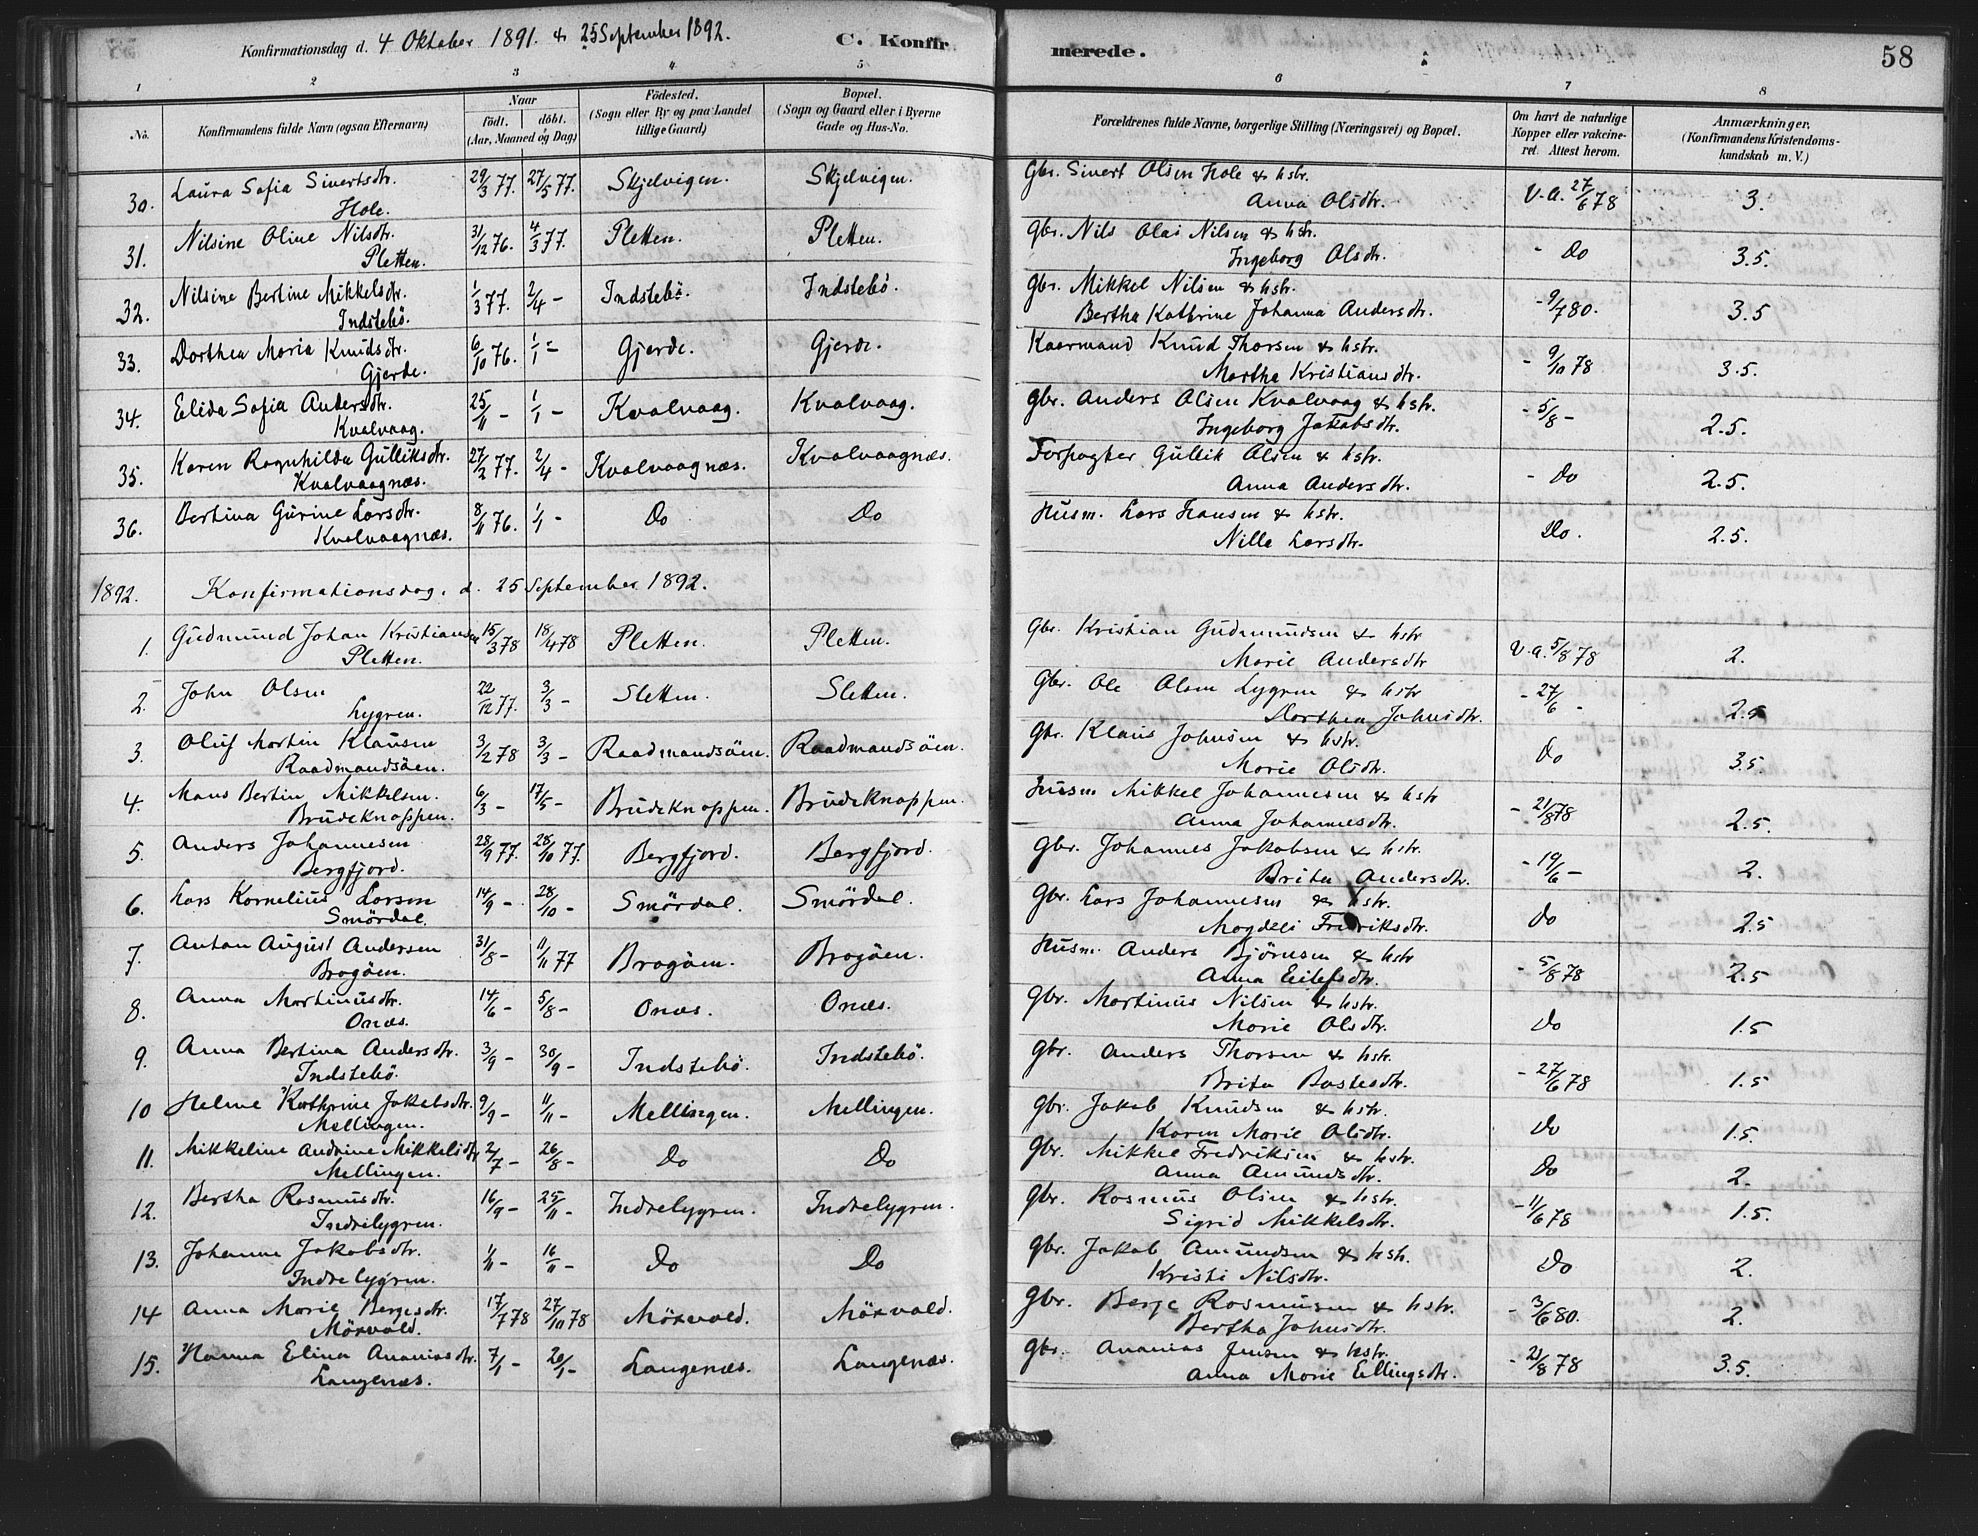 Konfirmationsdag d. 4 Oktober 1891. & 25 September 1892.
C. Konfirmerede.
58
1 2 3 4 5 6 7 8
No.
Konfirmandens fulde Navn (ogsaa Efternavn)
Naar
födt. döbt.
(Aar, Maaned og Dag)
Födested.
(Sogn eller By og paa Landet
tillige Gaard)
Bopæl.
(Sogn og Gaard eller i Byerne
Gade og Hus-No.
Forældrenes fulde Navne, borgerlige Stilling (Næringsvei) og Bopæl.
Om havt de naturlige
Kopper eller vakcine-
ret. Attest herom.
Anmærkninger.
(Konfirmandens Kristendoms-
kundskab m. V.)
30. Laura Sofia Sivertsdtr. 29/3 77. 27/5 77. Skjelvigen. Skjelvigen. Gbr. Sivert Olsen Hole & hstr. V.a. 27/6 78 3.
Hole. Anna Olsdtr.
31. Nilsine Oline Nilsdtr. 31/12 76. 4/3 77. Pletten. Pletten. Gbr. Nils Olai Nilsen & hstr. - Do 3.5.
Pletten. Ingeborg Olsdtr.
32. Nilsine Bertine Mikkelsdtr. 1/3 77. 2/4 - Indstebö. Indstebö. Gbr. Mikkel Nilsen & hstr. - 9/7 80. 3.5
Indstebö. Bertha Kathrine Johanna Andersdtr.
33. Dorthea Maria Knudsdtr. 6/10 76. 1/1 - Gjerde. Gjerde. Kaarmand Knud Thorsen & hstr. - 9/10 78 3.5.
Gjerde. Martha Kristiansdtr.
34. Elida Sofia Andersdtr. 25/11 - 1/1 - Kvalvaag. Kvalvaag. Gbr. Anders Olsen Kvalvaag & hstr. - 5/8 - 2.5.
Kvalvaag. Ingeborg Jakobsdtr.
35. Karen Ragnhilda Gulliksdtr. 27/2 77. 2/4 - Kvalvaagnæs. Kvalvaagnæs. Forpagter Gullik Olsen & hstr. - Do 2.5.
Kvalvaagnæs. Anna Andersdtr.
36. Bertina Gurine Larsdtr. 8/11 76. 1/1 - Do Do Husm. Lars Hansen & hstr. Do. 2.5.
Kvalvaagnæs. Nille Larsdtr.
1892. Konfirmationsdag. d. 25 September 1892.
1. Gudmund Johan Kristiansen 15/3 78 18/4 78 Pletten. Pletten. Gbr. Kristian Gudmundsen & hstr V.a. 5/8 78 2.
Pletten. Marie Andersdtr
2. John Olsen 22/12 77. 3/3 - Sletten. Sletten. Gbr. Ole Olsen Lygren & hstr - 27/6 - 2.5
Lygren. Dorthea Johnsdtr.
3. Oluf Martin Klausen 3/2 78 3/3 - Raadmandsöen. Raadmandsöen. Gbr. Klaus Johnsen & hstr. Do 3.5.
Raadmandsöen. Marie Olsdtr.
4. Mons Bertin Mikkelsen. 6/3 - 17/5 - Brudeknappen. Brudeknappen. Husm Mikkel Johannesen & hstr - 21/8 78 2.5.
Brudeknappen. Anna Johannesdtr.
5. Anders Johannesen 28/9 77. 28/10 77. Bergfjord. Bergfjord. Gbr. Johannes Jakobsen & hstr. - 19/6 - 2.
Bergfjord. Brita Andersdtr.
6. Lars Kornelius Larsen 14/9 - 28/10 - Smördal. Smördal. Gbr. Lars Johannesen & hstr. Do 2.5
Smördal. Magdeli Fredriksdtr.
7. Anton August Andersen 31/8 - 11/11 77 Brogöen. Brogöen. Husm. Anders Bjørnsen & hstr - 5/8 78 2.5
Brogöen. Anna Eilefsdtr.
8. Anna Martinusdtr. 14/6 - 5/8 - Onæs. Onæs. Gbr. Martinus Nilsen & hstr. Do 1.5
Onæs. Marie Olsdtr.
9. Anna Bertina Andersdtr. 3/9 - 30/9 - Indstebö. Indstebö. Gbr. Anders Thorsen & hstr. - 27/6 78 1.5
Indstebö. Brita Bastesdtr.
10 Helene Kathrine Jakobsdtr. 9/9 - 11/11 - Mellingen. Mellingen. Gbr. Jakob Knudsen & hstr. Do 1.5.
Mellingen. Karen Marie Olsdtr.
11. Mikkeline Andrine Mikkelsdtr 2/7 - 26/8 - Do Do Gbr. Mikkel Fredriksen & hstr. Do 2.
Mellingen. Anna Amundsdtr.
12. Bertha Rasmusdtr. 16/9 - 25/11 - Indrelygren. Indrelygren. Gbr. Rasmus Olsen & hstr. - 11/6 78 1.5.
Indrelygren. Sigrid Mikkelsdtr.
13. Johanna Jakobsdtr. 1/11 - 16/11 - Do Do Gbr. Jakob Amundsen & hstr. Do 2.
Indrelygren. Kristi Nilsdtr.
14 Anna Marie Bergesdtr. 17/7 78 27/10 78 Mörvold. Mörvold. Gbr. Berge Rasmusen & hstr. - 3/6 80. 2.
Mörvold. Bertha Johnsdtr.
15. Hanna Elina Ananiasdtr. 7/1 - 20/1 - Langenæs. Langenæs. Gbr. Ananias Jensen & hstr. - 21/8 78 3.5.
Langenæs. Anna Marie Ellingsdtr.